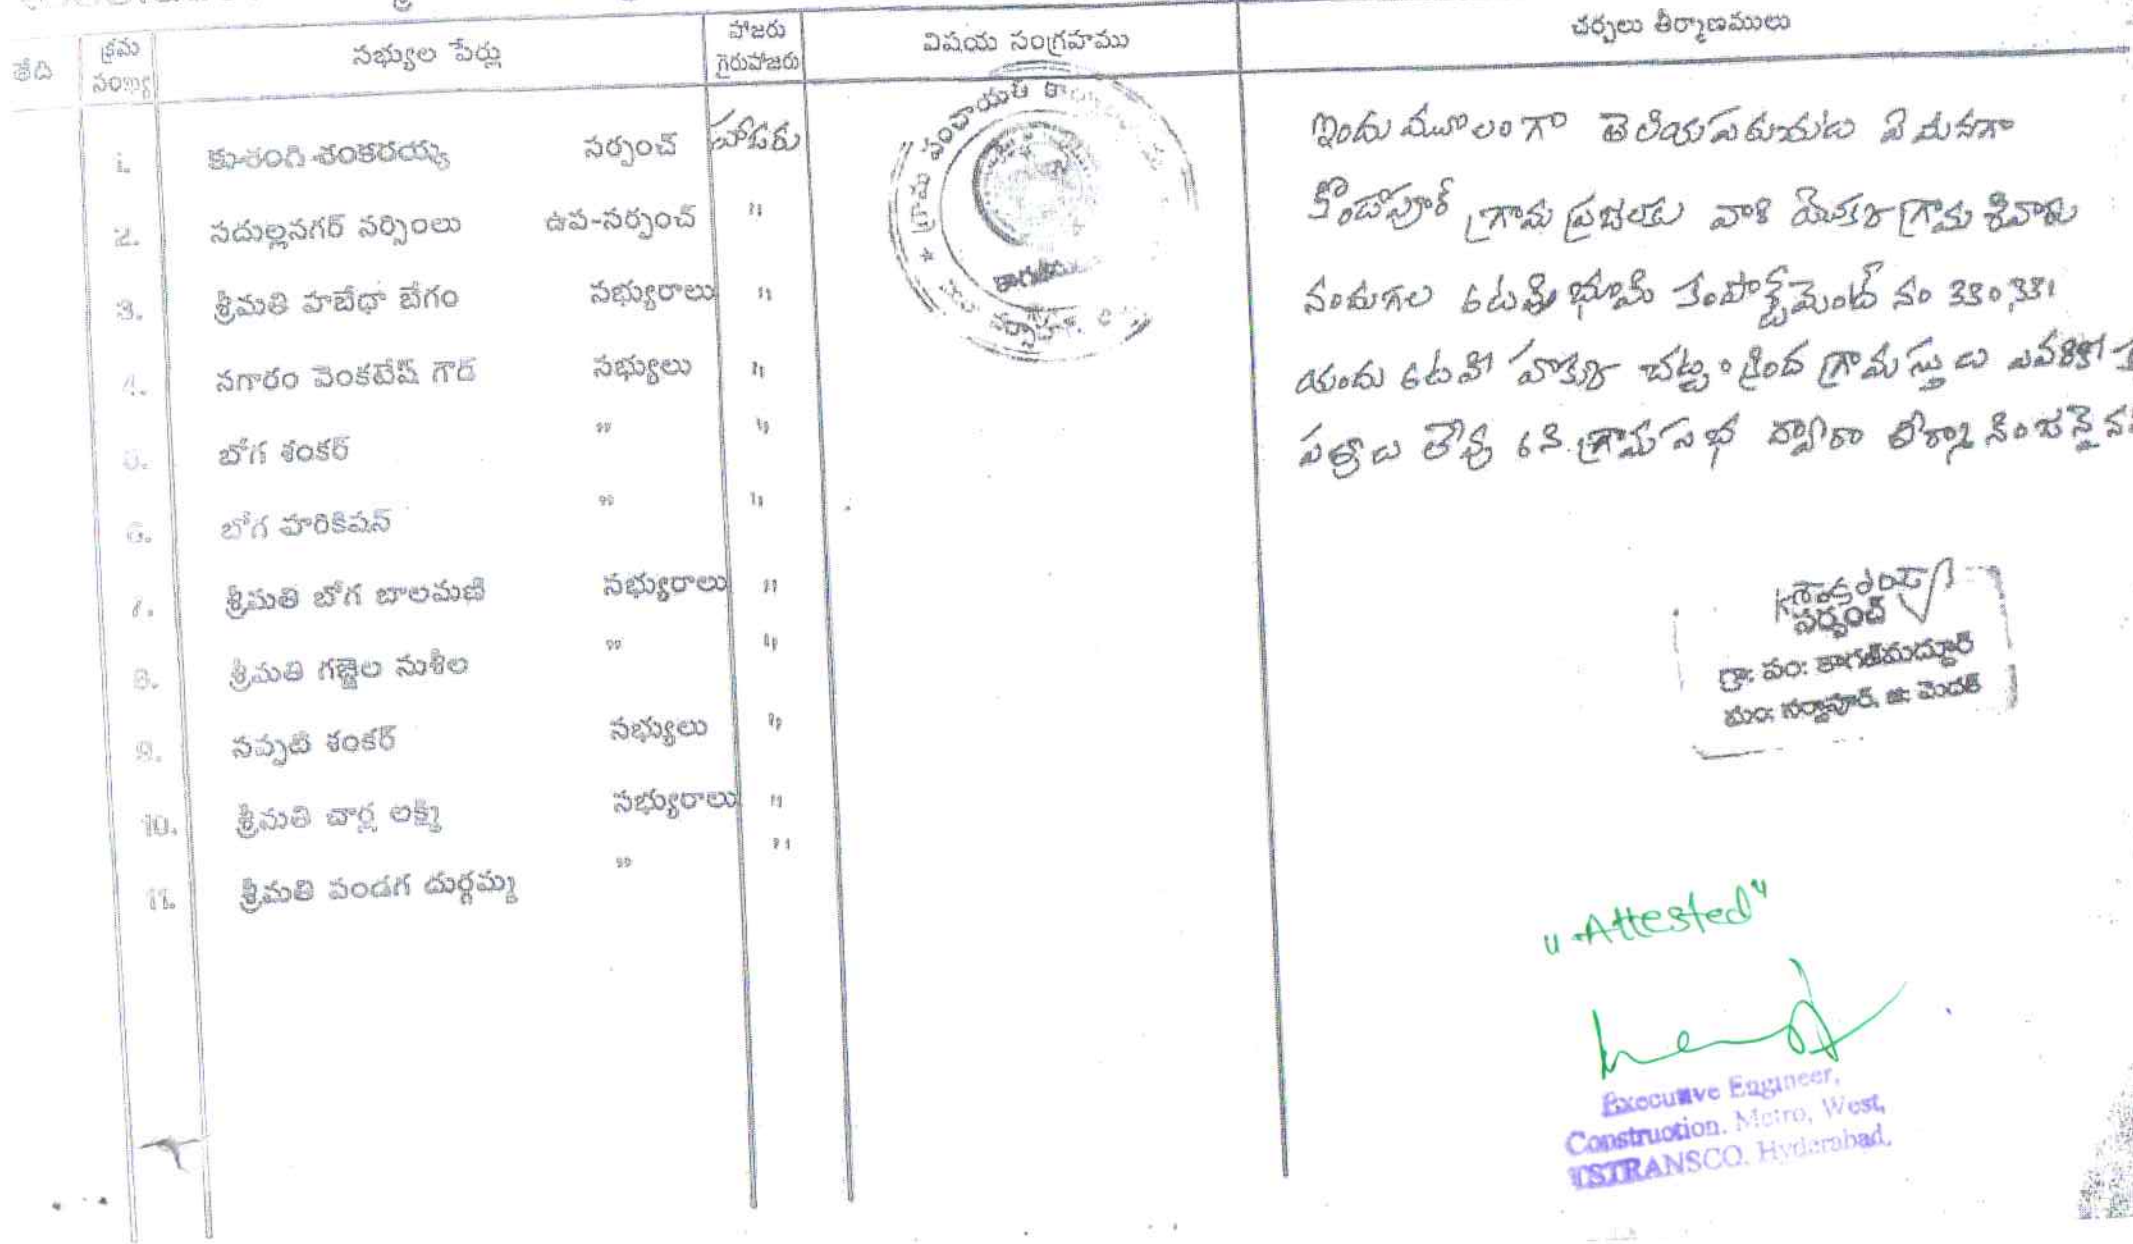 తేది
క్రమ సంఖ్య
సభ్యుల పేర్లు
హాజరు గైరుహాజరు
విషయ సంగ్రహము
చర్చలు తీర్మాణములు
1. శంకరయ్య సర్పంచ్ హాజరు
2. సదుల్లనగర్ నర్సింలు ఉప-సర్పంచ్ "
3. శ్రీమతి హబేధా బేగం సభ్యురాలు "
4. నగారం వెంకటేష్ గౌడ్ సభ్యులు "
5. బోగ శంకర్ " "
6. బోగ హరికిషన్ " "
7. శ్రీమతి బోగ బాలమణి సభ్యురాలు "
8. శ్రీమతి గజ్జెల సుశీల " "
9. సప్పటి శంకర్ సభ్యులు "
10. శ్రీమతి చార్ల లక్ష్మి సభ్యురాలు "
11. శ్రీమతి పండగ దుర్గమ్మ " "
గ్రామ పంచాయతి
ఇందుమూలంగా తెలియపరుచుట ఏమనగా
కొండాపూర్ గ్రామ ప్రజలకు వారి యొక్క గ్రామ శివారు
నందుగల అటవీ భూమి కంపార్ట్మెంట్ నం 330,331
యందు అటవీ హక్కు చట్టం క్రింద గ్రామస్తులు ఎవరికి
పట్టాలు లేవు అని గ్రామసభ ద్వారా
సర్పంచ్
గ్రా: పం: కాగజ్‌మద్దూర్
మం: నర్సాపూర్, జి: మెదక్
"Attested"
Executive Engineer,
Construction. Metro, West,
TSTRANSCO. Hyderabad.